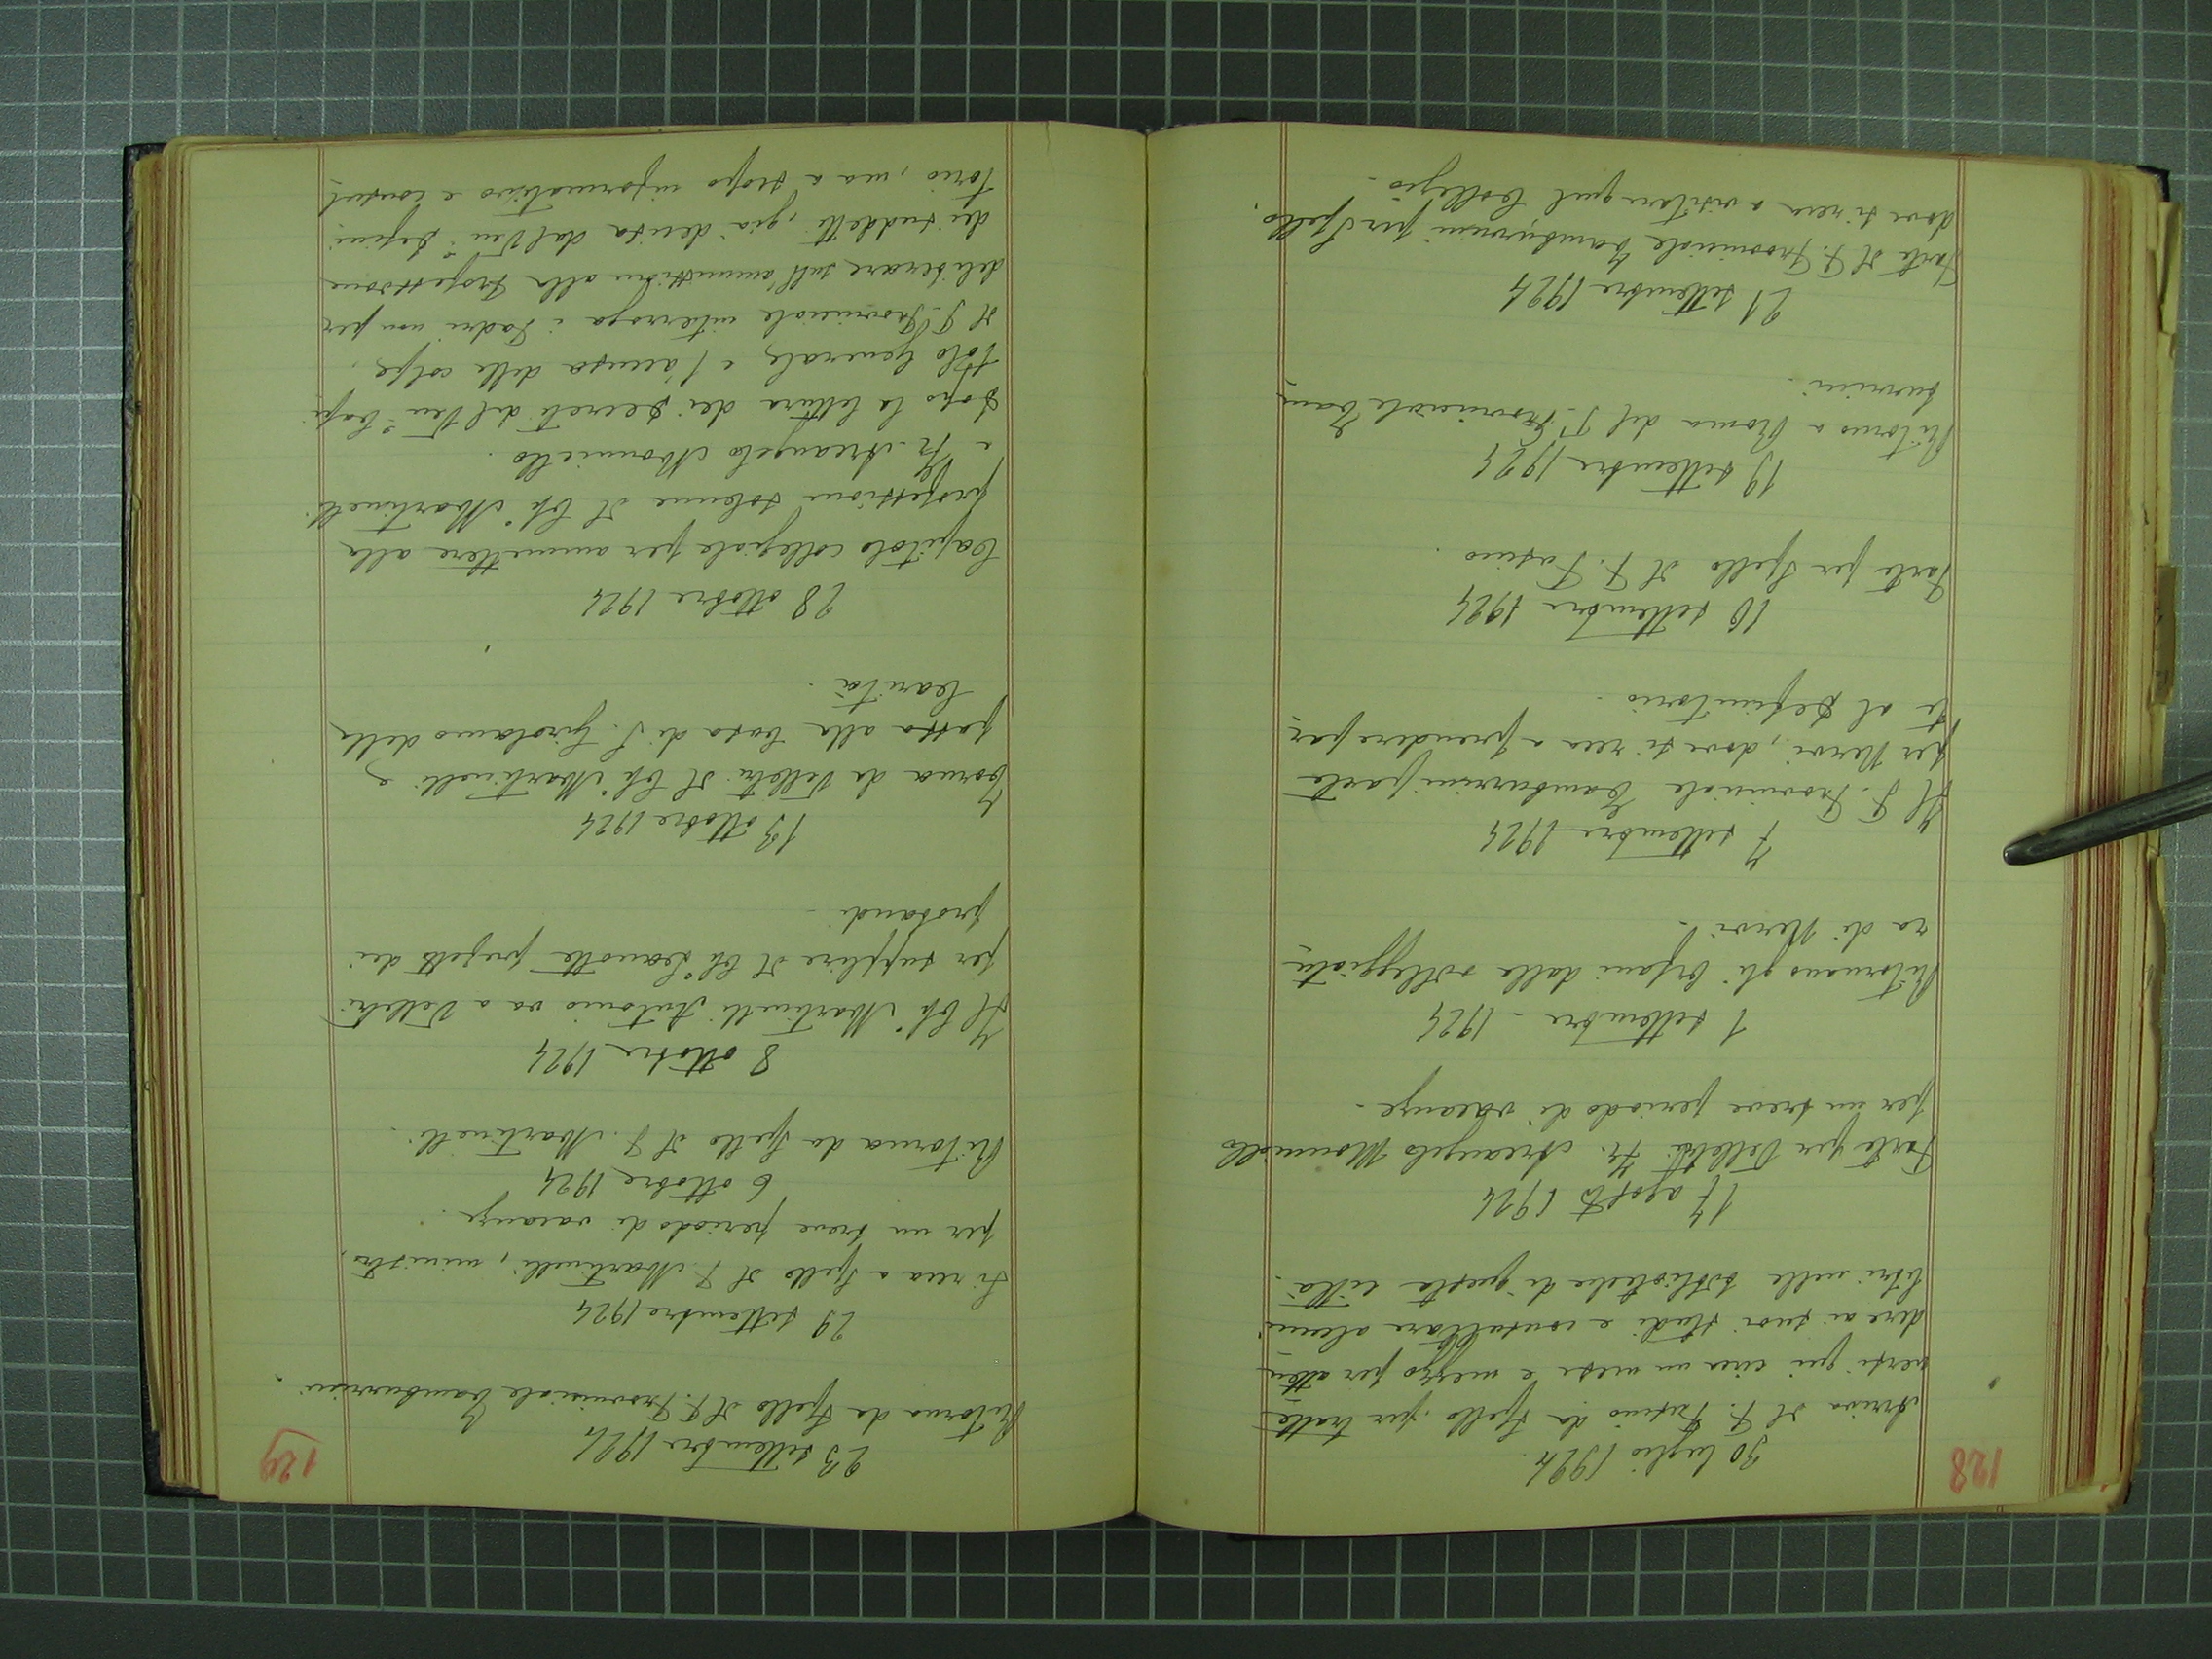 128
30 luglio 1924.
Arriva il P. Fusino da Spello, per tratte-
nersi qui circa un mese e mezzo per atten-
dere ai suoi studi e consultare alcuni
libri nelle biblioteche di questa città.
17 agosto 1924
Parte per Velletri Fr. Arcangelo Monniello
per un breve periodo di vacanze.
1 settembre - 1924
Ritornano gli Orfani dalla villeggiatu-
ra di Nervi.
7 settembre 1924
Il P. Provinciale Zambarini parte
per Nervi, dove si reca a prendere par-
te al Definitorio.
10 settembre 1924
Parte per Spello il P. Fusino.
19 settembre 1924
Ritorno a Roma del P. Provinciale Zam-
barini.
21 settembre 1924
Parte il P. Provinciale Zambarini per Spello,
dove si reca a visitare quel Collegio.
129
23 settembre 1924
Ritorna da Spello il P. Provinciale Zambarini.
29 settembre 1924
Si reca a Spello il P. Martinelli, ministro,
per un breve periodo di vacanze.
6 ottobre 1924
Ritorna da Spello il P. Martinelli.
8 ottobre 1924
Il Ch.º Martinelli Antonio va a Velletri
per supplire il Ch.º prefetto dei
probandi.
19 ottobre 1924
Torna da Velletri il Ch.º Martinelli e
passa alla Casa di S. Girolamo della
Carità.
28 ottobre 1924
Capitolo collegiale per ammettere alla
professione solenne il Ch.º Martinelli
e Fr. Arcangelo Monniello.
Dopo la lettura dei Decreti del Ven.º Capi-
tolo Generale, e l'accusa delle colpe,
il P. Provinciale interroga i Padri non per
deliberare sull'ammissione alla professione
dei suddetti, già decisa dal Ven.º Defini-
torio, ma a scopo informativo e consul-